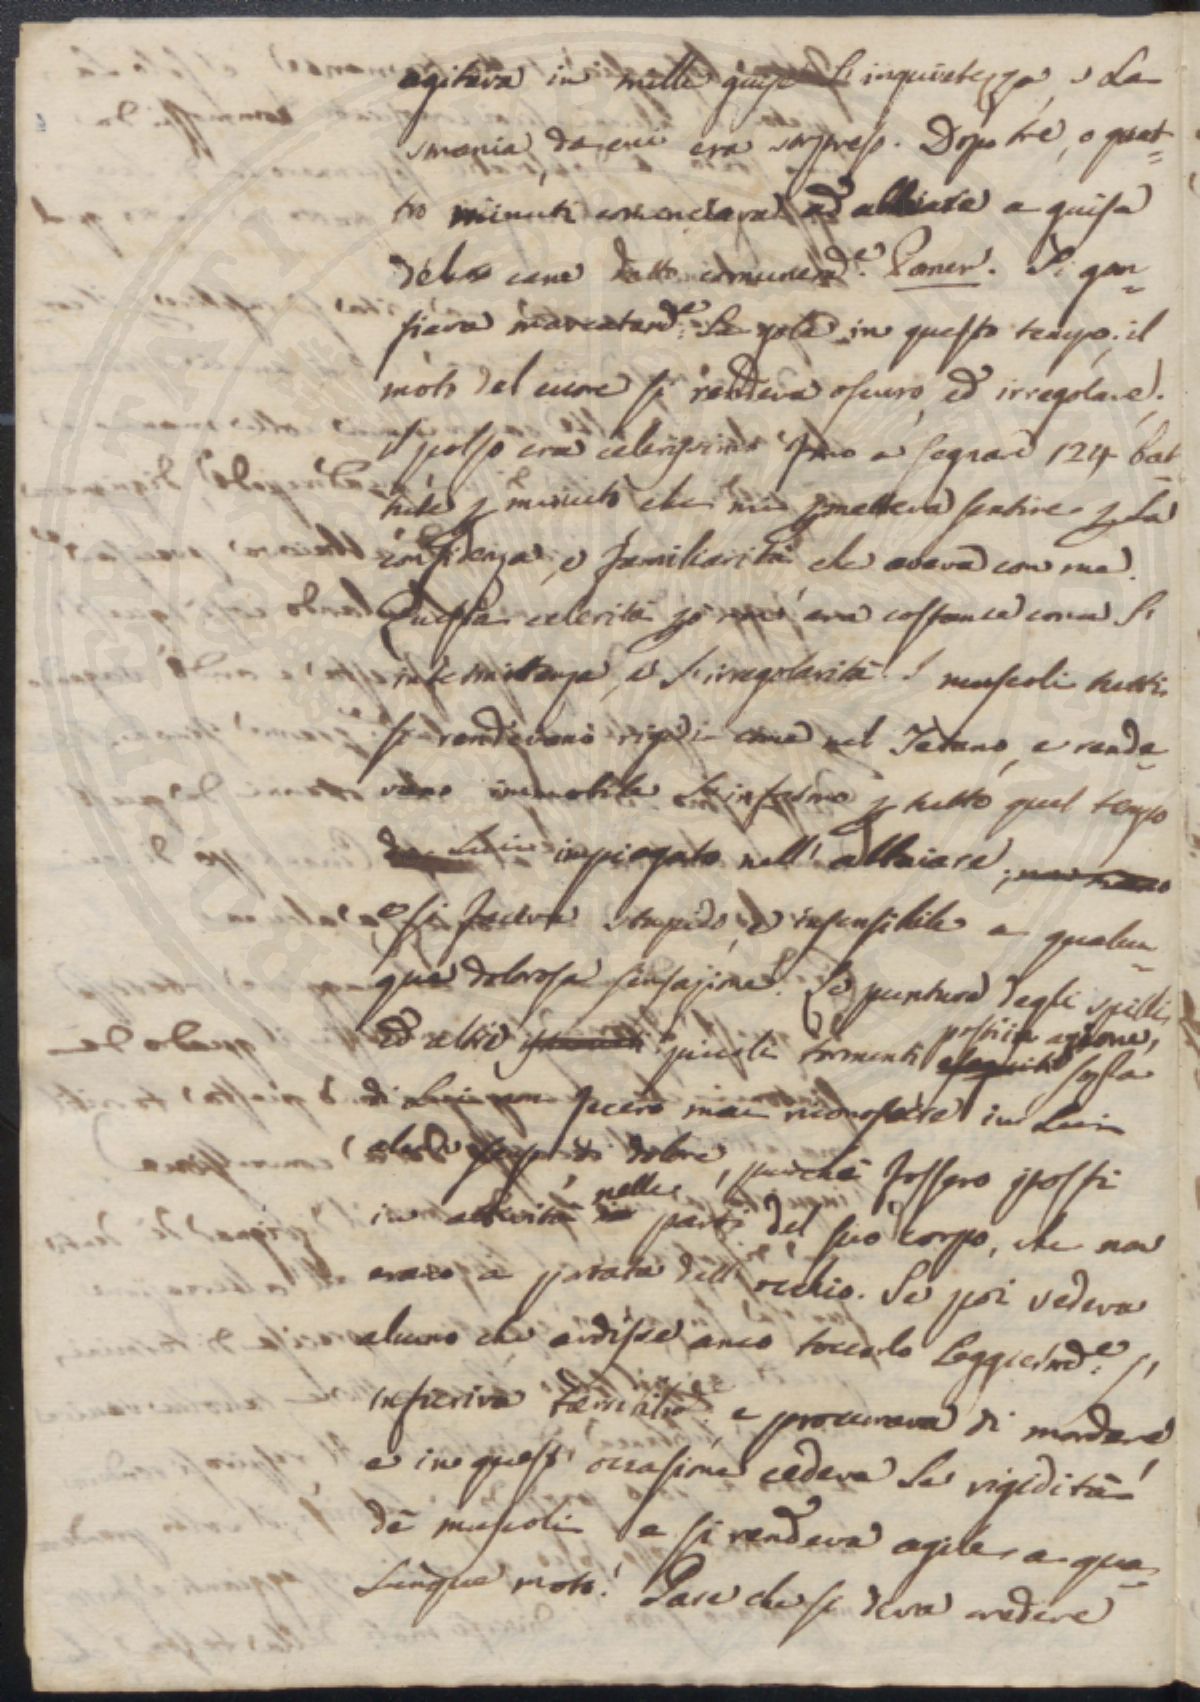 agitava in mille guise l'inquietezza, e la
smania, da cui era sorpreso. Dopo tre, o quat=
tro minuti comenciava ad abbaiare a guisa
del cane detto comunem.e Pomer. Si gon=
fiava la gola in questo tempo; il
moto del cuore si rendeva oscuro, ed irregolare;
il polso era celerissimo fino a segnare 124 bat=
tute p minuto che mi permetteva sentire p la
confidenza, e familiarità che aveva con me.
Questa celerità però non era costante come l'
intermittenza, e l'irregolarità. I muscoli tutti
si rendevano rigidi come nel Tetano, e rende=
vano immobile l'infermo p tutto quel tempo
da Lui impiegato nell'abbaiare;
e si faceva stupido, e insensibile a qualun=
que dolorosa sensazione. Le punture degli spilli,
ed altri piccoli tormenti posti in azione, sopra
di Lui non fecero mai riconoscere in Lui
alcun segno di dolore, purché fossero posti
in attività nelle parti del suo corpo, che non
erano a portata dell'occhio. Se poi vedeva
alcuno che ardisse anco toccarlo leggierm.e s'
inferiva e procurava di mordere
e in quest'occasione cedeva la rigidità
de muscoli e si rendeva agile a qua=
lunque moto. Pare che si deva credere